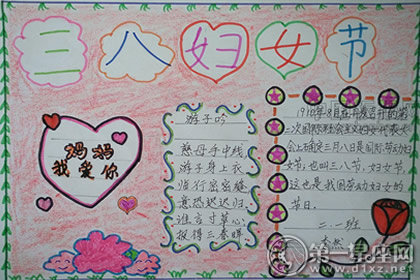 三八妇女节
妈妈
我爱你
游子吟
慈母手中线,
游子身上衣
临行密密缝
意恐迟迟归,
谁言寸草心
报得三春晖
1910年8月在丹麦召开的第
二次国际社会主义妇女代表大
会上确定三月八日是国际劳动妇
女节,也叫三八节,妇女节,
这也是我国劳动妇女的
节日。
二.一班
第一星座网
www.d1xz.net